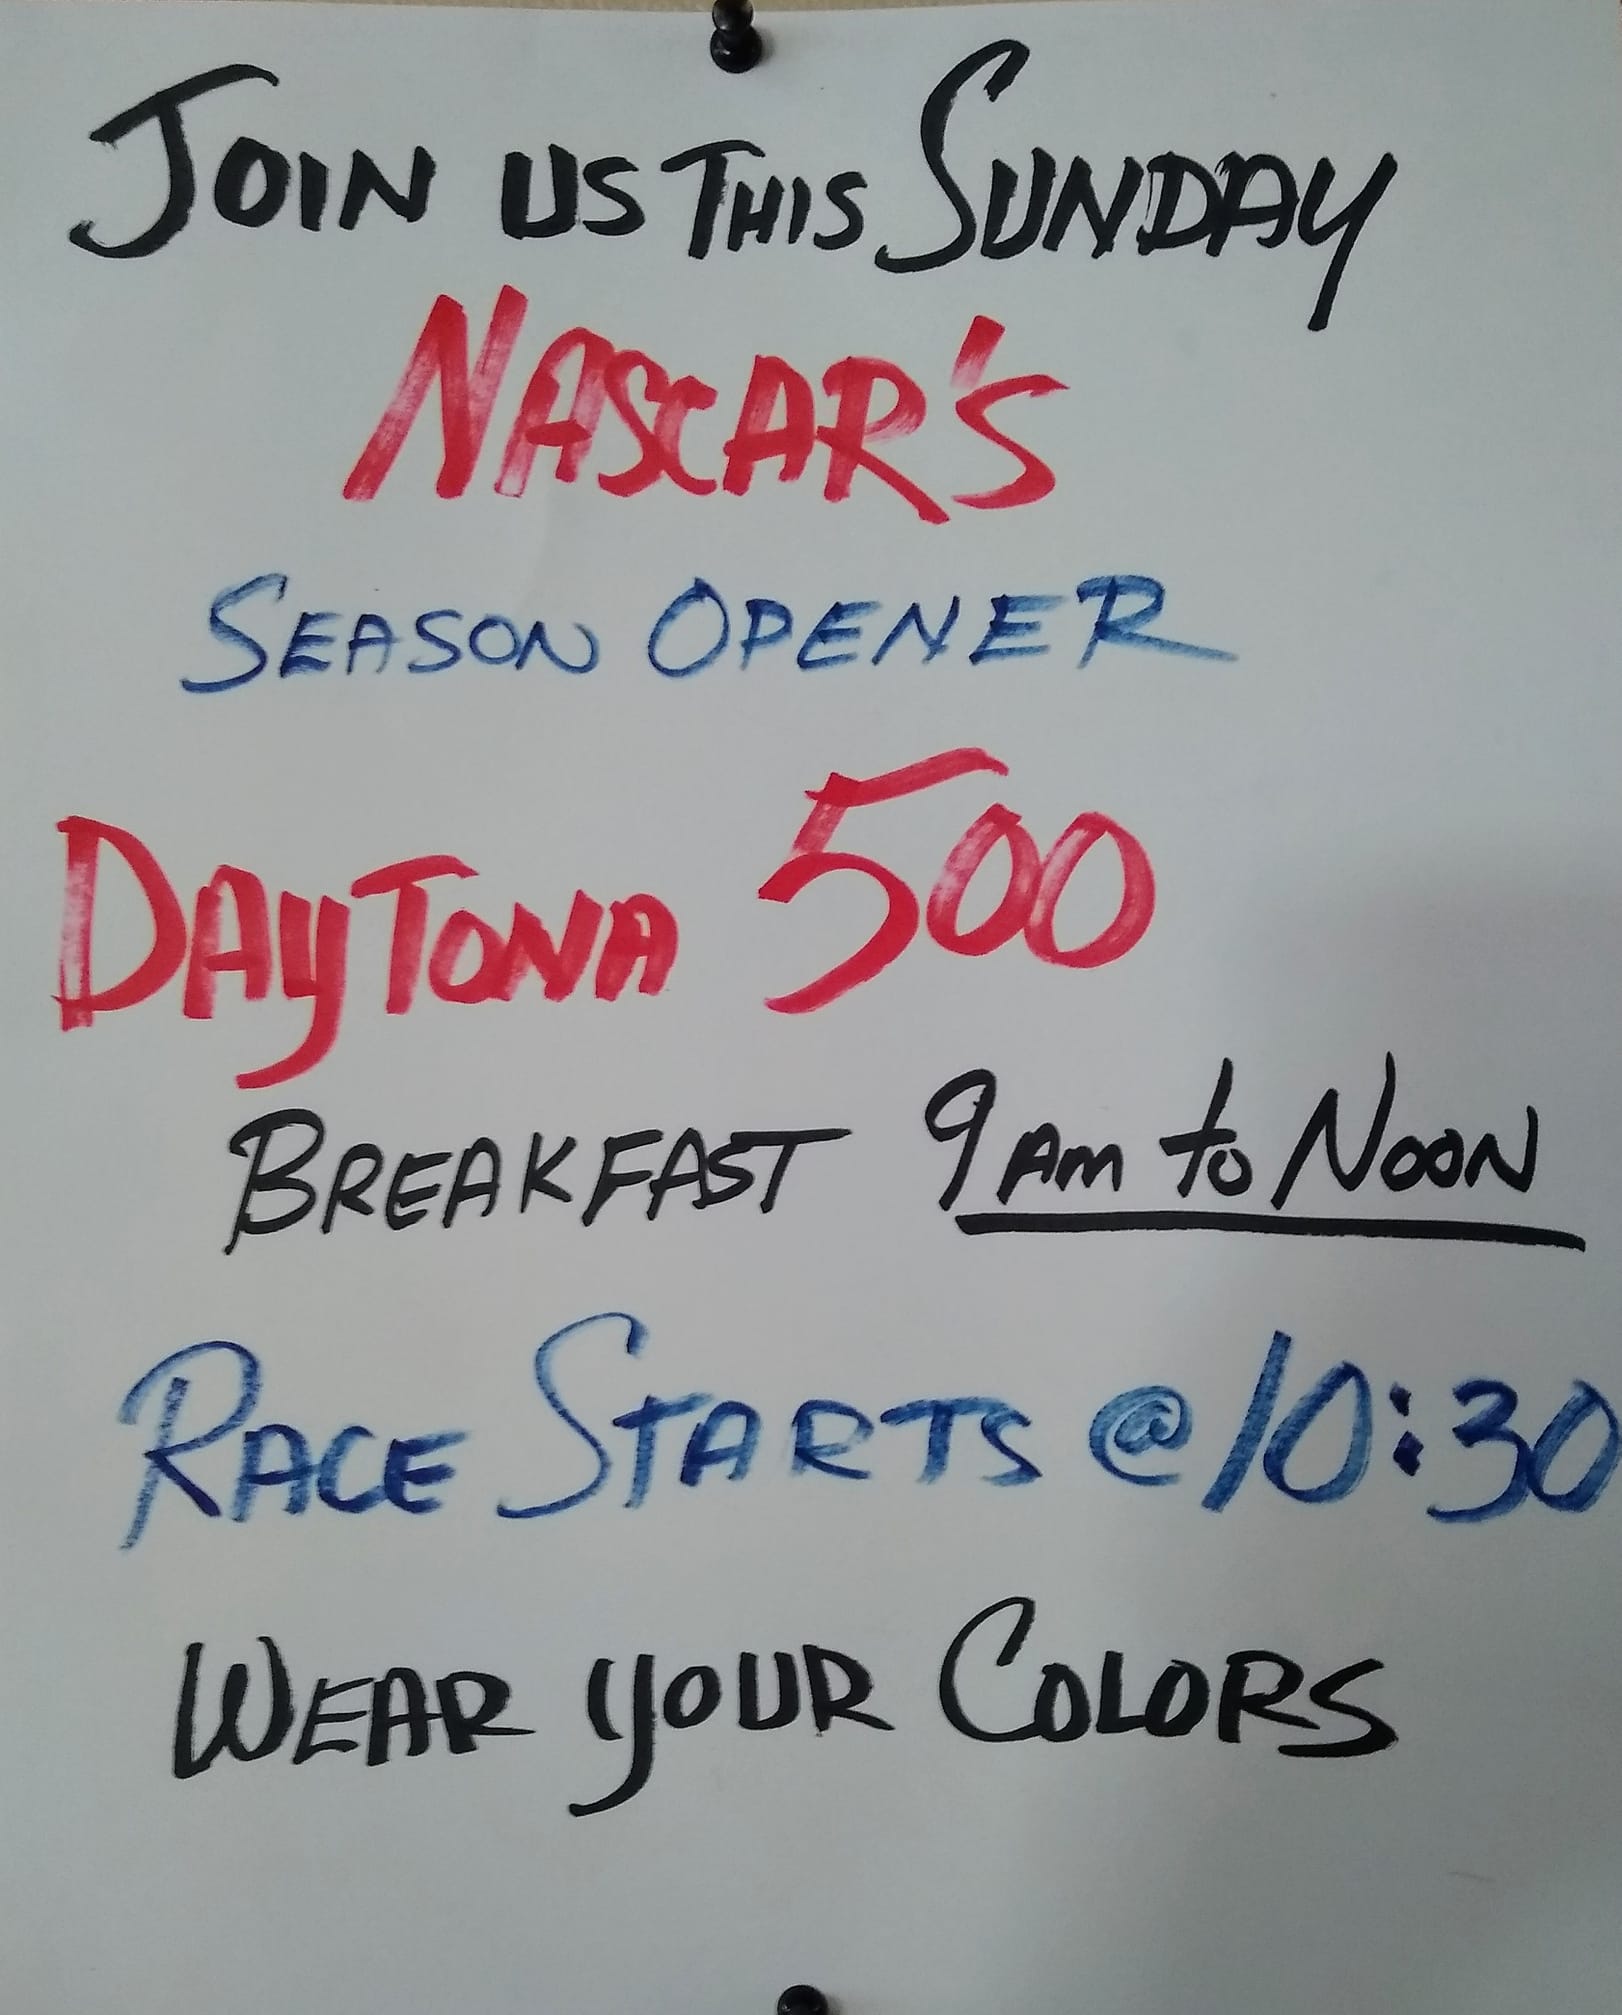 JOIN US THIS SUNDAY
NASCAR'S
SEASON OPENER
DAYTONA 500
BREAKFAST 9AM to NOON
RACE STARTS @ 10:30
WEAR YOUR COLORS